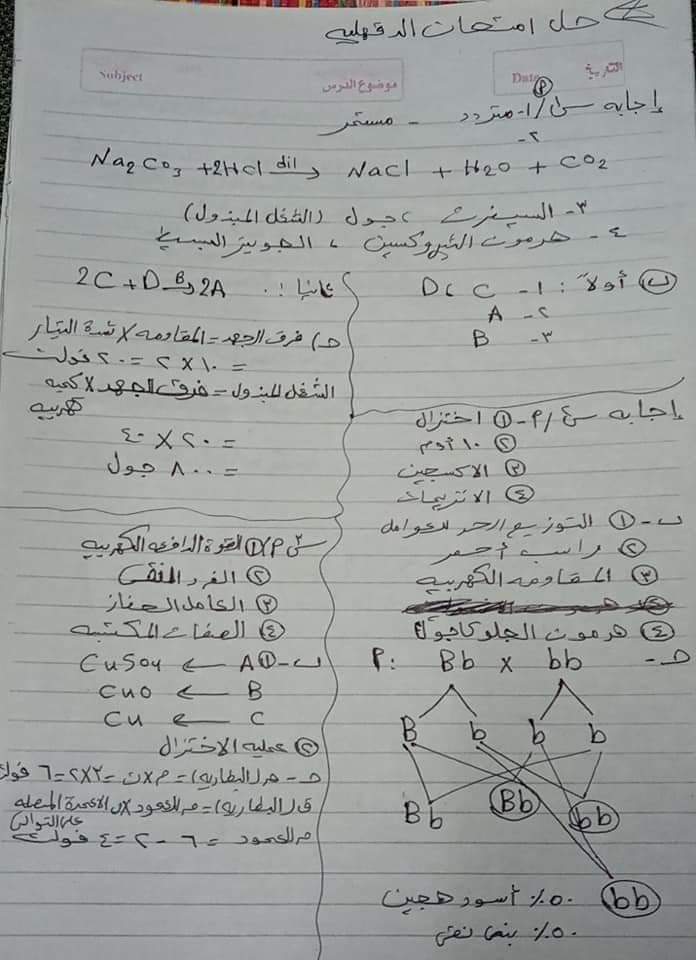 حل امتحان الدقهلية
التاريخ
Date
موضوع الدرس
Subject
إجابه س١/ P ١- متردد - مستمر
٢-
Na2CO3 + 2HCl dil → NaCl + H2O + CO2
٣- السيفرت ، جول (الشغل المبذول)
٤- هرمون الثيروكسين ، الجويتر البسيط
ب أولاً : ١- C ، D
٢- A
٣- B
ثانيا : 2C + D B→ 2A
حـ) فرق الجهد = المقاومه X شدة التيار
= ١٠ X ٢ = ٢٠ فولت
الشغل المبذول = فرق الجهد X كميه
كهربيه
= ٢٠ X ٤٠
= ٨٠٠ جول
إجابه س٤/ P - ١ اختزال
٢ ١٠ أوم
٣ الاكسجين
٤ الانزيمات
ب - ١ التوزيع الحر للعوامل
٢ راسب أحمر
٣ المقاومه الكهربيه
٤ هرمون الجلوكاجون
حـ - P: Bb x bb
B b b b
Bb Bb bb bb
٥٠٪ أسود هجين
٥٠٪ بنى نقى
س٣/ P ١ القوة الدافعه الكهربيه
٢ الفرد النقى
٣ العامل الحفاز
٤ الصفات المكتسبه
ب - ١ A ← CuSO4
B ← CuO
C ← Cu
٢ عمليه الاختزال
حـ - ق (البطاريه) = م X ن = ٣ X ٢ = ٦ فولت
ق (البطاريه) = ق للعمود X ن الاعمدة المتصله
على التوالى
ق للعمود = ٦ - ٢ = ٤ فولت